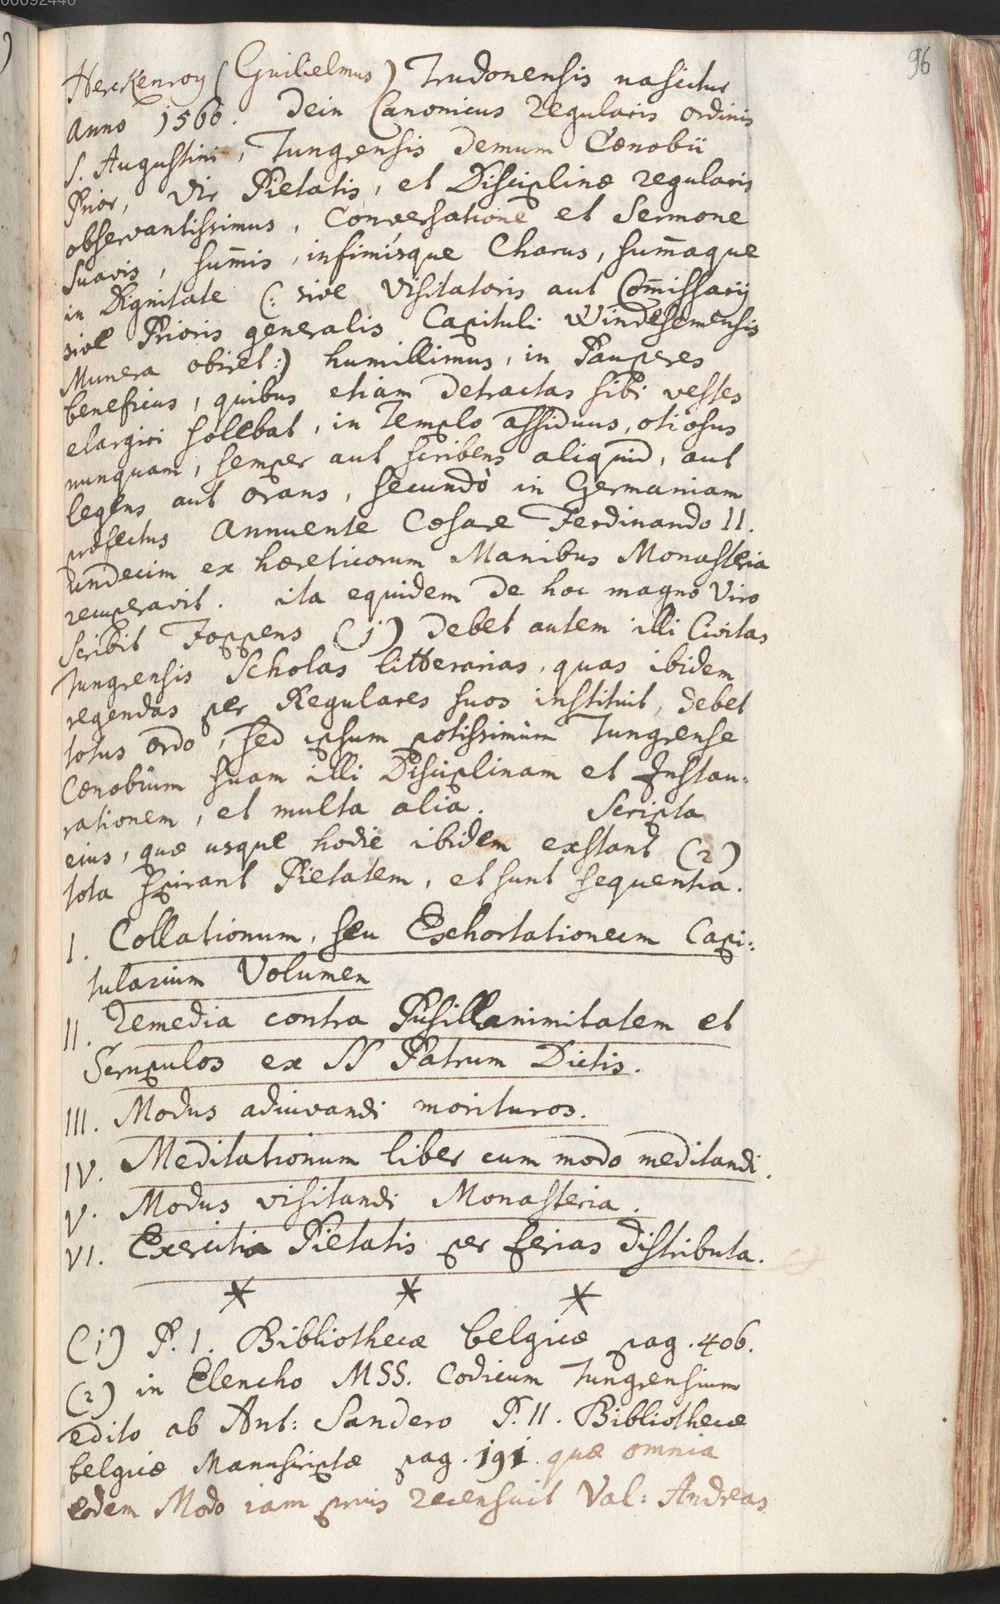 96
Herckenroy (Guilielmus) Trudonensis nascitur
Anno 1560. Dein Canonicus Regularis ordinis
S. Augustini, Tungrensis demum Cœnobii
Prior, Vir Pietatis, et Disciplinæ regularis
observantissimus, Conversatione et Sermone
suavis, sum̄is, infimisque Charus, sum̄aque
in Dignitate (: sive Visitatoris aut Com̄issarij
sive Prioris generalis Capituli Windesemensis
Munera obiret:) humillimus, in Pauperes
beneficus, quibus etiam detractas sibi vestes
elargiri solebat, in Templo assiduus, otiosus
nunquam, semper aut scribens aliquid, aut
legens aut orans, secundò in Germaniam
profectus Annuente Cæsare Ferdinando II.
undecim ex hæreticorum Manibus Monasteria
recuperavit. ita equidem de hoc magno Viro
scribit Foppens (1) debet autem illi Civitas
Tungrensis Scholas litterarias, quas ibidem
regendas per Regulares suos instituit, debet
totus ordo, sed ipsum potissimùm Tungrense
Cœnobium suam illi Disciplinam et Instau:
rationem, et multa alia. Scripta
eius, quæ usque hodie ibidem exstant (2)
tota spirant Pietatem, et sunt sequentia.
I. Collationum, seu Exhortationum Capi:
tularium Volumen
II. Remedia contra Pusillanimitatem et
Scrupulos ex SS Patrum Dictis.
III. Modus adiuvandi morituros.
IV. Meditationum liber cum modo meditandi.
V. Modus visitandi Monasteria.
VI. Exercitia Pietatis per ferias distributa.
* * *
(1) P. I. Bibliothecæ belgicæ pag. 406.
(2) in Elencho MSS. Codicum Tungrensium
edito ab Ant: Sandero P. II. Bibliothecæ
belgicæ Manuscriptæ pag. 191. quæ omnia
eodem Modo iam prius recensuit Val: Andreas